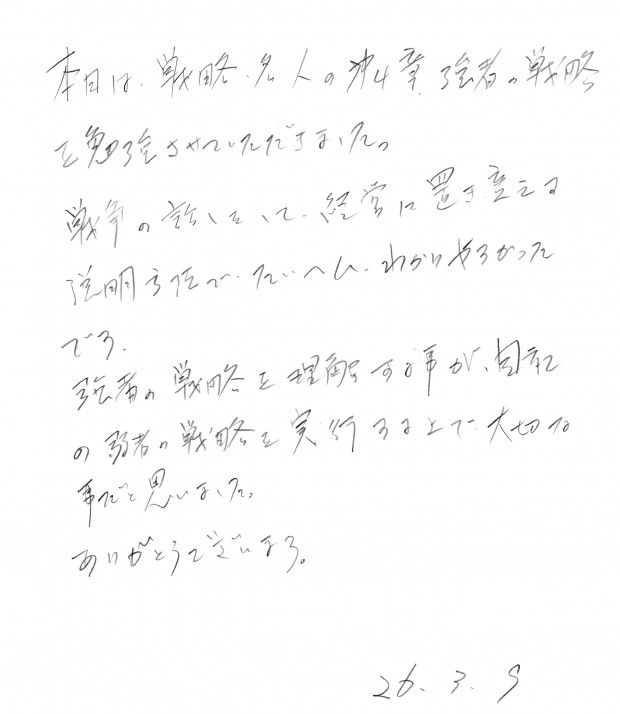 本日は、戦略名人の第4章 強者の戦略
を勉強させていただきました。
戦争の話をして、経営に置き変える
説明方法で、たいへん、わかりやすかった
です。
強者の戦略を理解する事が、自社
の弱者の戦略を実行する上で、大切な
事だと思いました。
ありがとうございます。
26.3.9